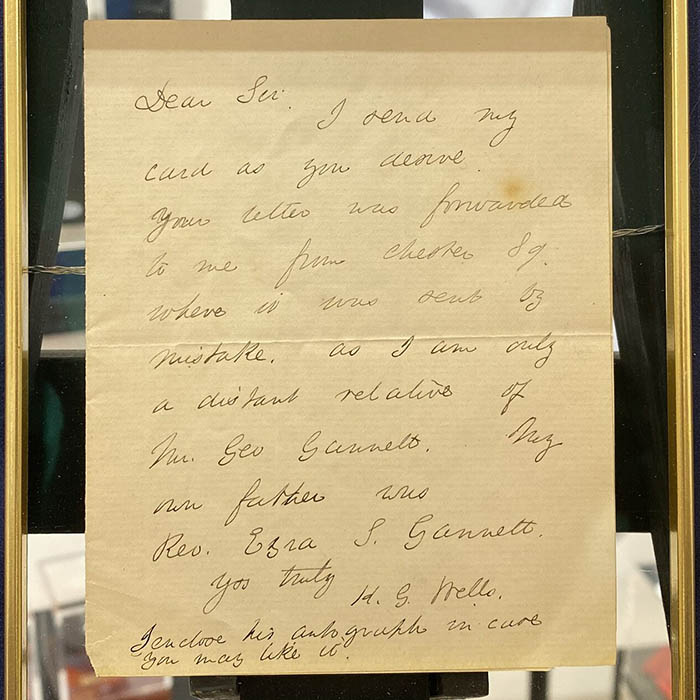 Dear Sir. I send my
card as you desire.
Your letter was forwarded
to me from Chester Sq.
where it was sent by
mistake. as I am only
a distant relative of
Mr. Geo Gannett. My
own father was
Rev. Ezra S. Gannett.
Yos truly
K. G. Wells.
I enclose his autograph in case
you may like it.